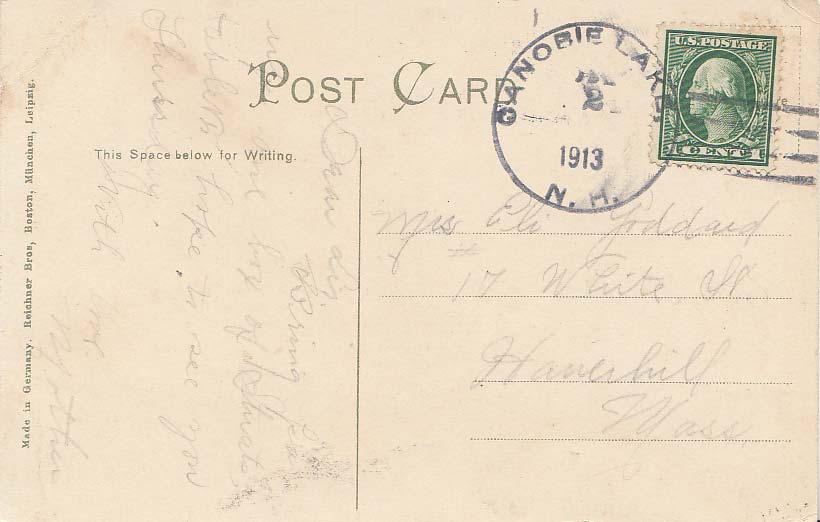 POST CARD
This Space below for Writing.
CANOBIE LAKE
2
1913
N. H.
U.S. POSTAGE
1 CENT 1
Mrs Eli Goddard
# 17 White St.
Haverhill
Mass
Dear
bring
me one box of
tablets hope to see you
Thursday.
With love.
Mother
Made in Germany. Reichner Bros, Boston, München, Leipzig.